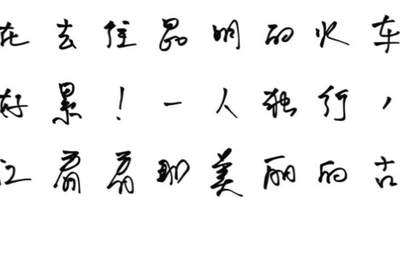 在去往昆明的火车
好累！一人独行，
看看那美丽的古